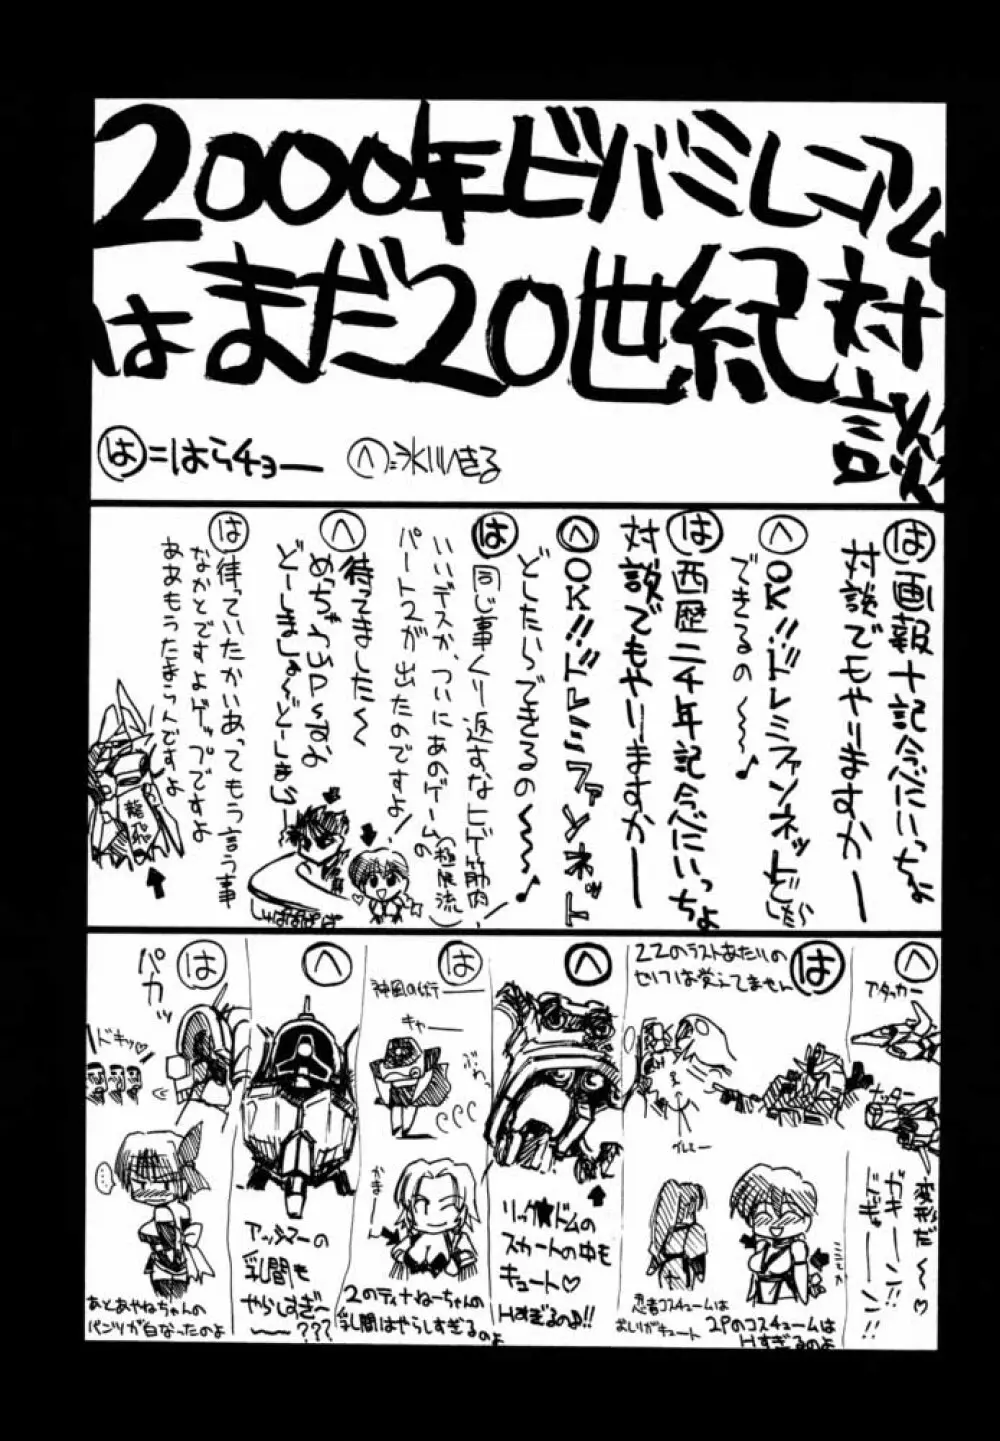 2000年ビバミレニアム
はまだ20世紀対談
は=はらチョー
へ=氷川へきる
は 画報十記念にいっちょ
対談でもやりますかー
へ OK!!ドレミファンネットどしたら
できるの〜〜〜♪
は 西暦二千年記念にいっちょ
対談でもやりますかー
へ OK!!ドレミファンネット
どしたらできるの〜〜〜♪
は 同じ事くり返すなヒゲ筋肉!
いいデスか、ついにあのゲーム(極限流)の
パート2が出たのですよ!
へ 待ってました〜
めっちゃUPっすよ
どーしましょ〜どーしましょ
は 待っていたかいあってもう言う事
なかとですよゲップですよ
ああもうたまらんですよ
龍飛
しゅぱぱぱぱぱ
へ
アタッカー
ナッター
変形だ〜♡
ガキーーン!!
ドギューーン!!
は
ZZのラストあたりの
セリフは覚えてません
グレミー
忍者コスチュームは
おしりがキュート
2Pのコスチュームは
Hすぎるのよ
へ
リック★ドムの
スカートの中も
キュート♡
Hすぎるのよ!!
は
神風の術ー
キャー
ぶわっ
かまーー
2のティナねーちゃんの
乳間はやらしすぎるのよ
へ
アッシマーの
乳間も
やらしすぎ〜
〜〜???
は
パカッ
ドキッ♡
…
あとあやねちゃんの
パンツが白なったのよ